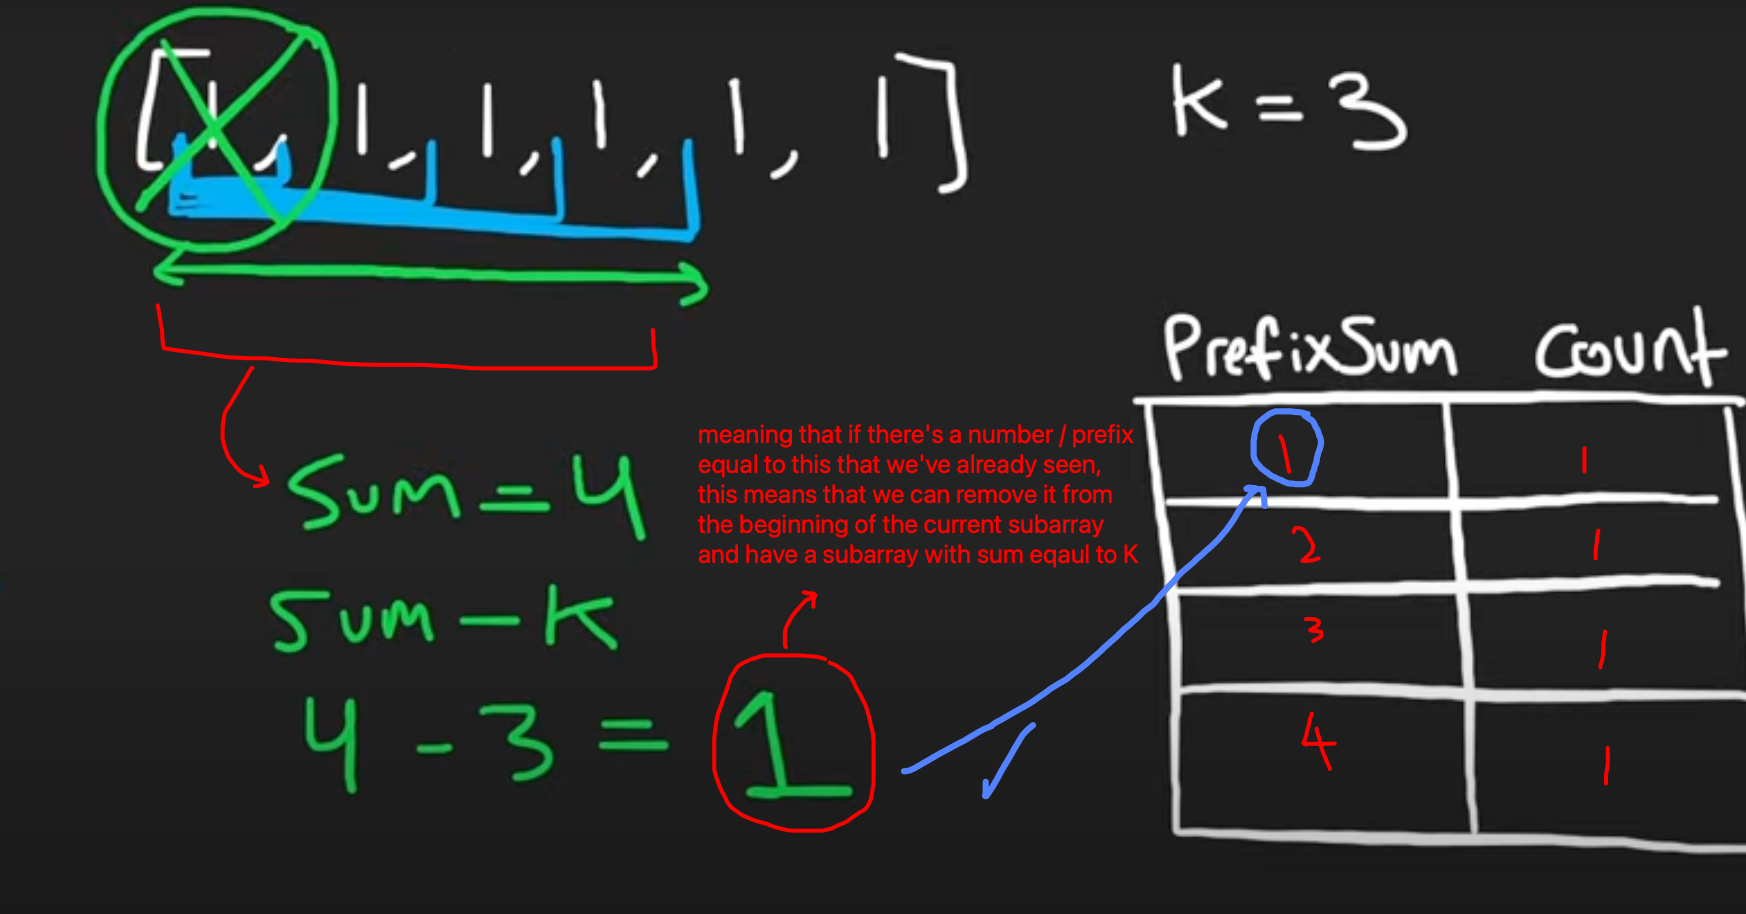 [1, 1, 1, 1, 1, 1]
K = 3
PrefixSum Count
1 1
2 1
3 1
4 1
meaning that if there's a number / prefix
equal to this that we've already seen,
this means that we can remove it from
the beginning of the current subarray
and have a subarray with sum eqaul to K
Sum = 4
Sum - K
4 - 3 = 1